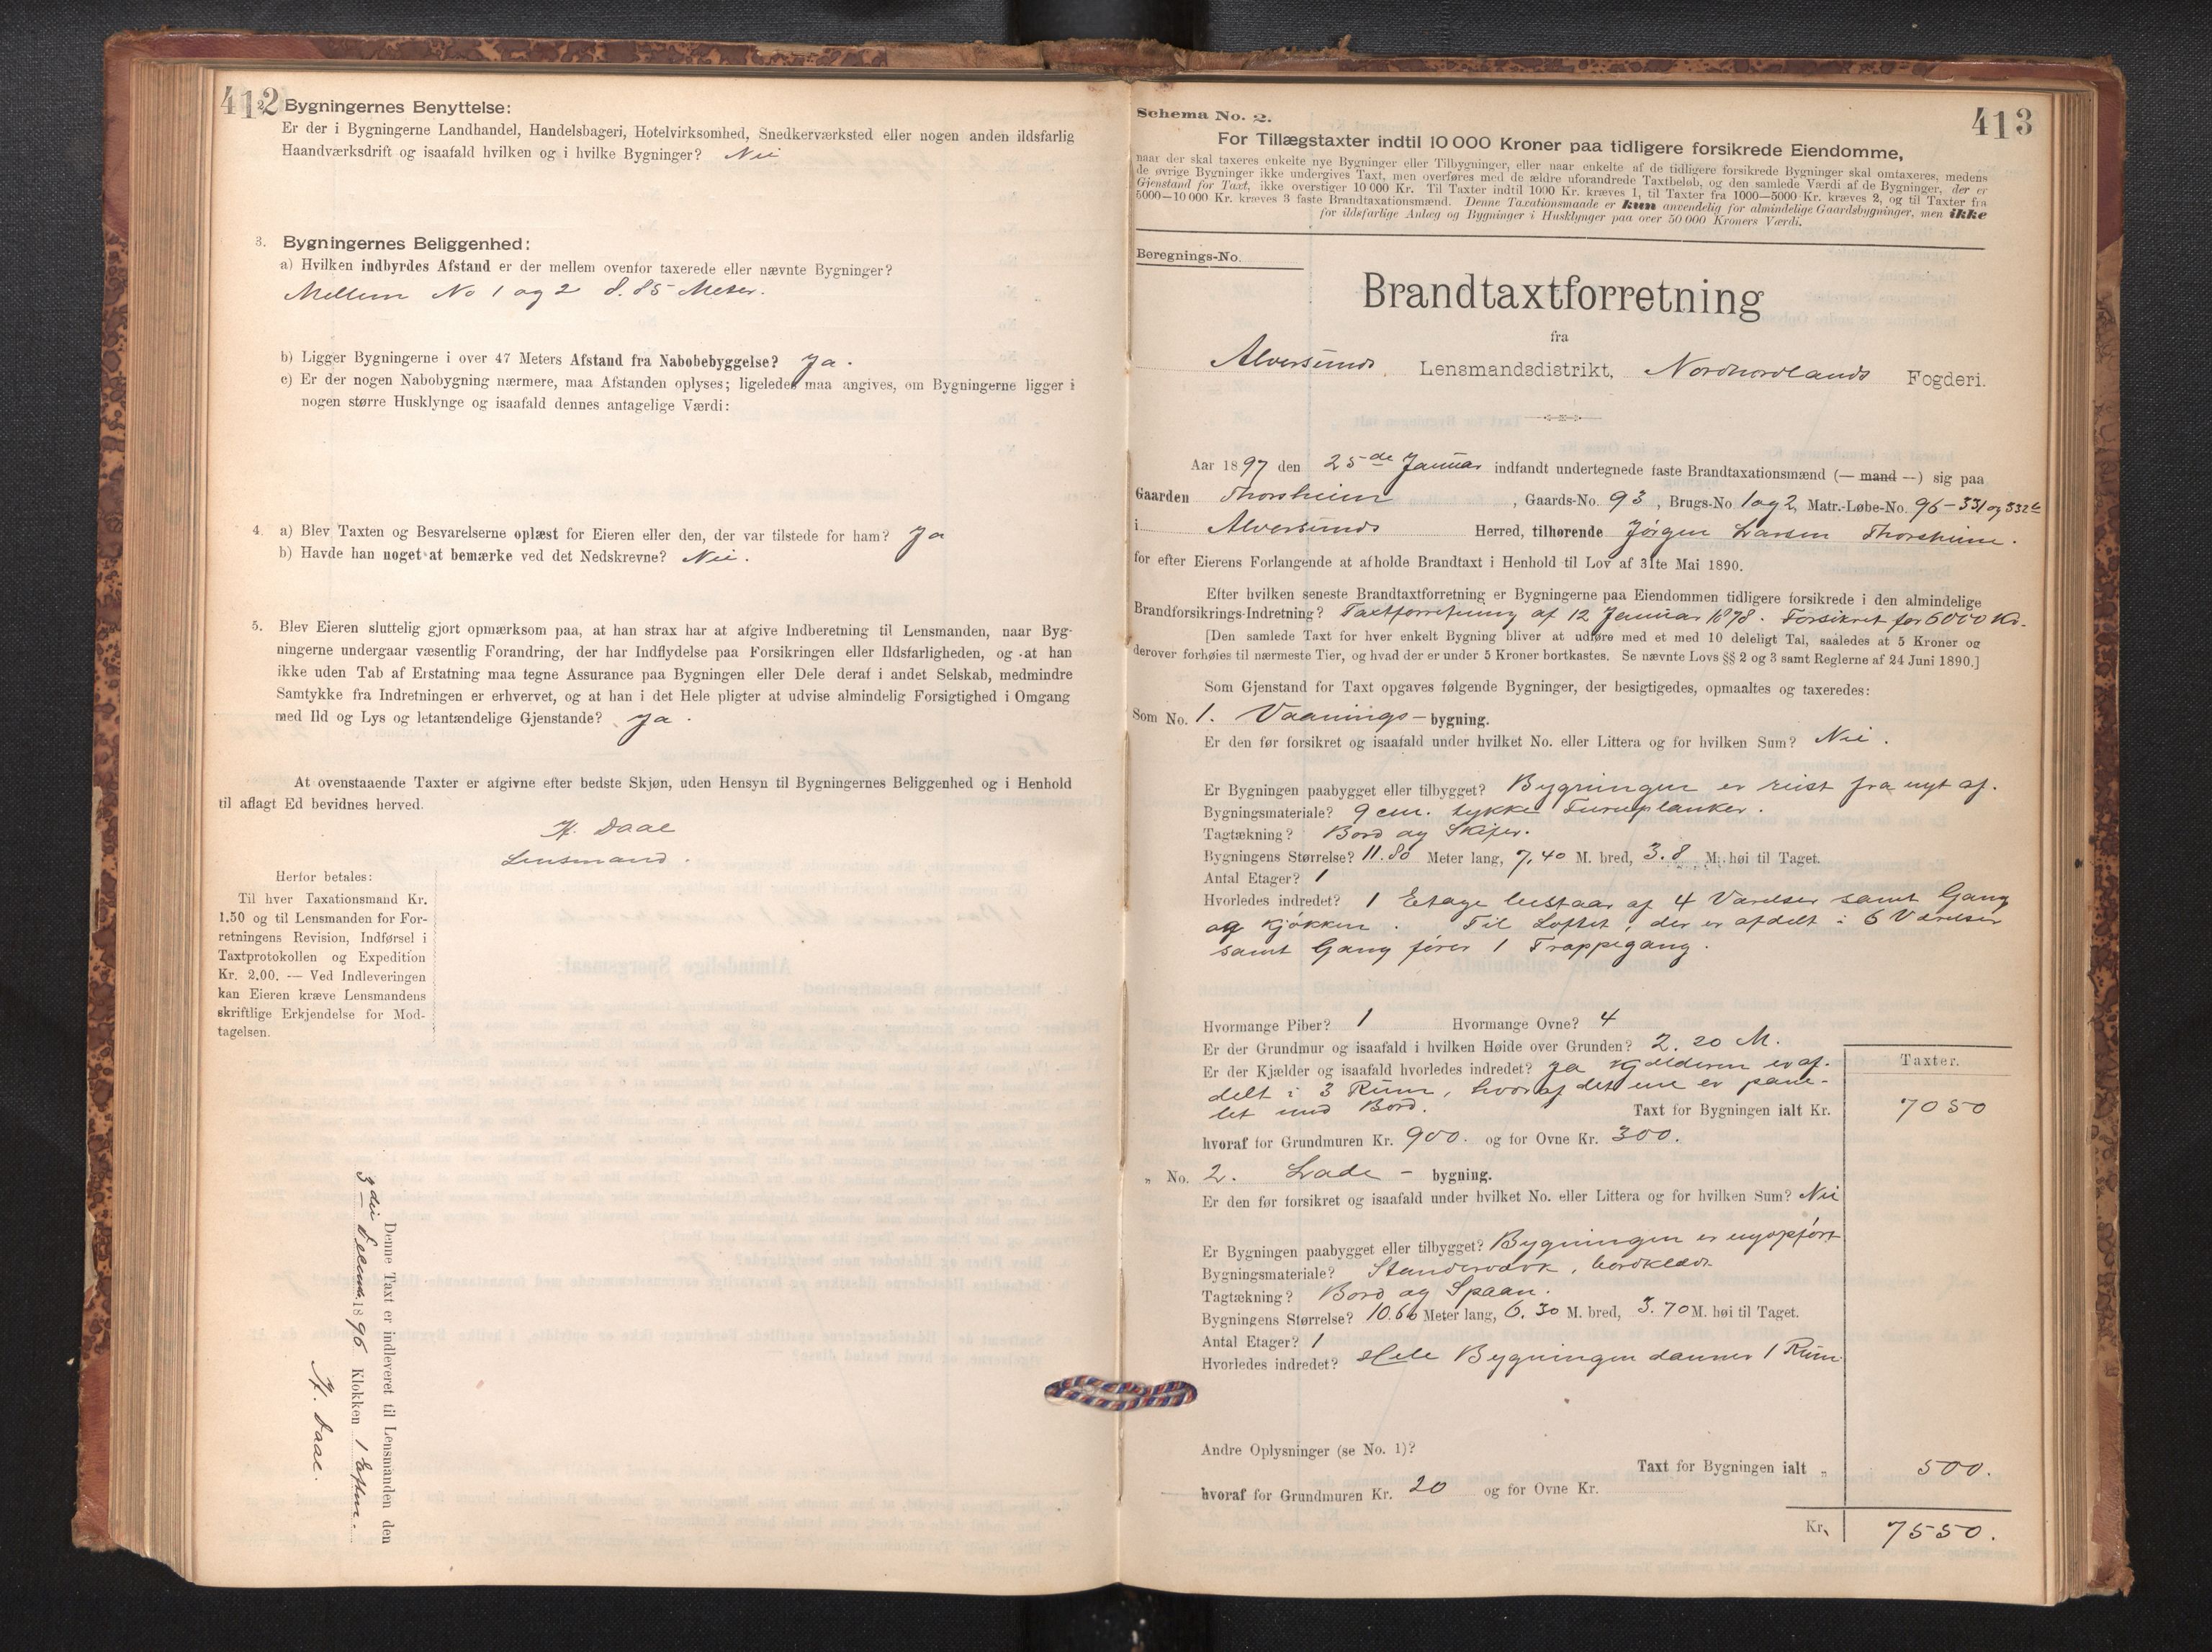 412
2. Bygningernes Benyttelse:
Er der i Bygningerne Landhandel, Handelsbageri, Hotelvirksomhed, Snedkerværksted eller nogen anden ildsfarlig
Haandværksdrift og isaafald hvilken og i hvilke Bygninger? Nei
3. Bygningernes Beliggenhed:
a) Hvilken indbyrdes Afstand er der mellem ovenfor taxerede eller nævnte Bygninger?
Mellem No 1 og 2 8.85 Meter.
b) Ligger Bygningerne i over 47 Meters Afstand fra Nabobebyggelse? Ja.
c) Er der nogen Nabobygning nærmere, maa Afstanden oplyses; ligeledes maa angives, om Bygningerne ligger i
nogen større Husklynge og isaafald dennes antagelige Værdi:
4. a) Blev Taxten og Besvarelserne oplæst for Eieren eller den, der var tilstede for ham? Ja
b) Havde han noget at bemærke ved det Nedskrevne? Nei.
5. Blev Eieren sluttelig gjort opmærksom paa, at han strax har at afgive Indberetning til Lensmanden, naar Byg-
ningerne undergaar væsentlig Forandring, der har Indflydelse paa Forsikringen eller Ildsfarligheden, og at han
ikke uden Tab af Erstatning maa tegne Assurance paa Bygningen eller Dele deraf i andet Selskab, medmindre
Samtykke fra Indretningen er erhvervet, og at han i det Hele pligter at udvise almindelig Forsigtighed i Omgang
med Ild og Lys og letantændelige Gjenstande? Ja.
At ovenstaaende Taxter er afgivne efter bedste Skjøn, uden Hensyn til Bygningernes Beliggenhed og i Henhold
til aflagt Ed bevidnes herved.
H. Daae
Lensmand.
Herfor betales:
Til hver Taxationsmand Kr.
1.50 og til Lensmanden for For-
retningens Revision, Indførsel i
Taxtprotokollen og Expedition
Kr. 2.00. — Ved Indleveringen
kan Eieren kræve Lensmandens
skriftlige Erkjendelse for Mod-
tagelsen.
Denne Taxt er indleveret til Lensmanden den
3die 1896 Klokken 1 Efterm.
H. Daae.
413
Schema No. 2.
For Tillægstaxter indtil 10 000 Kroner paa tidligere forsikrede Eiendomme,
naar der skal taxeres enkelte nye Bygninger eller Tilbygninger, eller naar enkelte af de tidligere forsikrede Bygninger skal omtaxeres, medens
de øvrige Bygninger ikke undergives Taxt, men overføres med de ældre uforandrede Taxtbeløb, og den samlede Værdi af de Bygninger, der er
Gjenstand for Taxt, ikke overstiger 10 000 Kr. Til Taxter indtil 1000 Kr. kræves 1, til Taxter fra 1000—5000 Kr. kræves 2, og til Taxter fra
5000—10 000 Kr. kræves 3 faste Brandtaxationsmænd. Denne Taxationsmaade er kun anvendelig for almindelige Gaardsbygninger, men ikke
for ildsfarlige Anlæg og Bygninger i Husklynger paa over 50 000 Kroners Værdi.
Beregnings-No.
Brandtaxtforretning
fra
Alversunds Lensmandsdistrikt, Nordhordlands Fogderi.
Aar 1897 den 25de Januar indfandt undertegnede faste Brandtaxationsmænd (— mand —) sig paa
Gaarden Thorsheim, Gaards-No. 93, Brugs-No 1 og 2, Matr.-Løbe-No. 96 - 331 og 332 b
i Alversunds Herred, tilhørende Jørgen Larsen Thorsheim.
for efter Eierens Forlangende at afholde Brandtaxt i Henhold til Lov af 31te Mai 1890.
Efter hvilken seneste Brandtaxtforretning er Bygningerne paa Eiendommen tidligere forsikrede i den almindelige
Brandforsikrings-Indretning? Taxtforretning af 12 Januar 1878. Forsikret for 6000 Kr.
[Den samlede Taxt for hver enkelt Bygning bliver at udføre med et med 10 deleligt Tal, saaledes at 5 Kroner og
derover forhøies til nærmeste Tier, og hvad der er under 5 Kroner bortkastes. Se nævnte Lovs §§ 2 og 3 samt Reglerne af 24 Juni 1890.]
Som Gjenstand for Taxt opgaves følgende Bygninger, der besigtigedes, opmaaltes og taxeredes:
Som No. 1. Vaanings-bygning.
Er den før forsikret og isaafald under hvilket No. eller Littera og for hvilken Sum? Nei.
Er Bygningen paabygget eller tilbygget? Bygningen er reist fra nyt af.
Bygningsmateriale? 9 cm. tykke Furuplanker.
Tagtækning? Bord og Skifer.
Bygningens Størrelse? 11.80 Meter lang, 7,40 M. bred, 3.8 M. høi til Taget.
Antal Etager? 1
Hvorledes indredet? 1 Etage bestaar af 4 Værelser samt Gang
og Kjøkken. Til Loftet, der er afdelt i 6 Værelser
samt Gang fører 1 Trappegang.
Hvormange Piber? 1 Hvormange Ovne? 4
Er der Grundmur og isaafald i hvilken Høide over Grunden? 2.20 M.
Er der Kjælder og isaafald hvorledes indredet? Ja Kjælderen er af-
delt i 3 Rum, hvoraf det ene er pane-
let med Bord.
Taxter.
Taxt for Bygningen ialt Kr. 7050
hvoraf for Grundmuren Kr. 900. og for Ovne Kr. 300.
„ No. 2. Lade - bygning.
Er den før forsikret og isaafald under hvilket No. eller Littera og for hvilken Sum? Nei
Er Bygningen paabygget eller tilbygget? Bygningen er nyopført
Bygningsmateriale? Standerværk, bordklædt
Tagtækning? Bord og Spaan.
Bygningens Størrelse? 10.60 Meter lang, 6.30 M. bred, 3.70 M. høi til Taget.
Antal Etager? 1
Hvorledes indredet? Hele Bygningen danner 1 Rum.
Andre Oplysninger (se No. 1)?
Taxt for Bygningen ialt „ 500.
hvoraf for Grundmuren Kr. 20 og for Ovne Kr.
Kr. 7550.